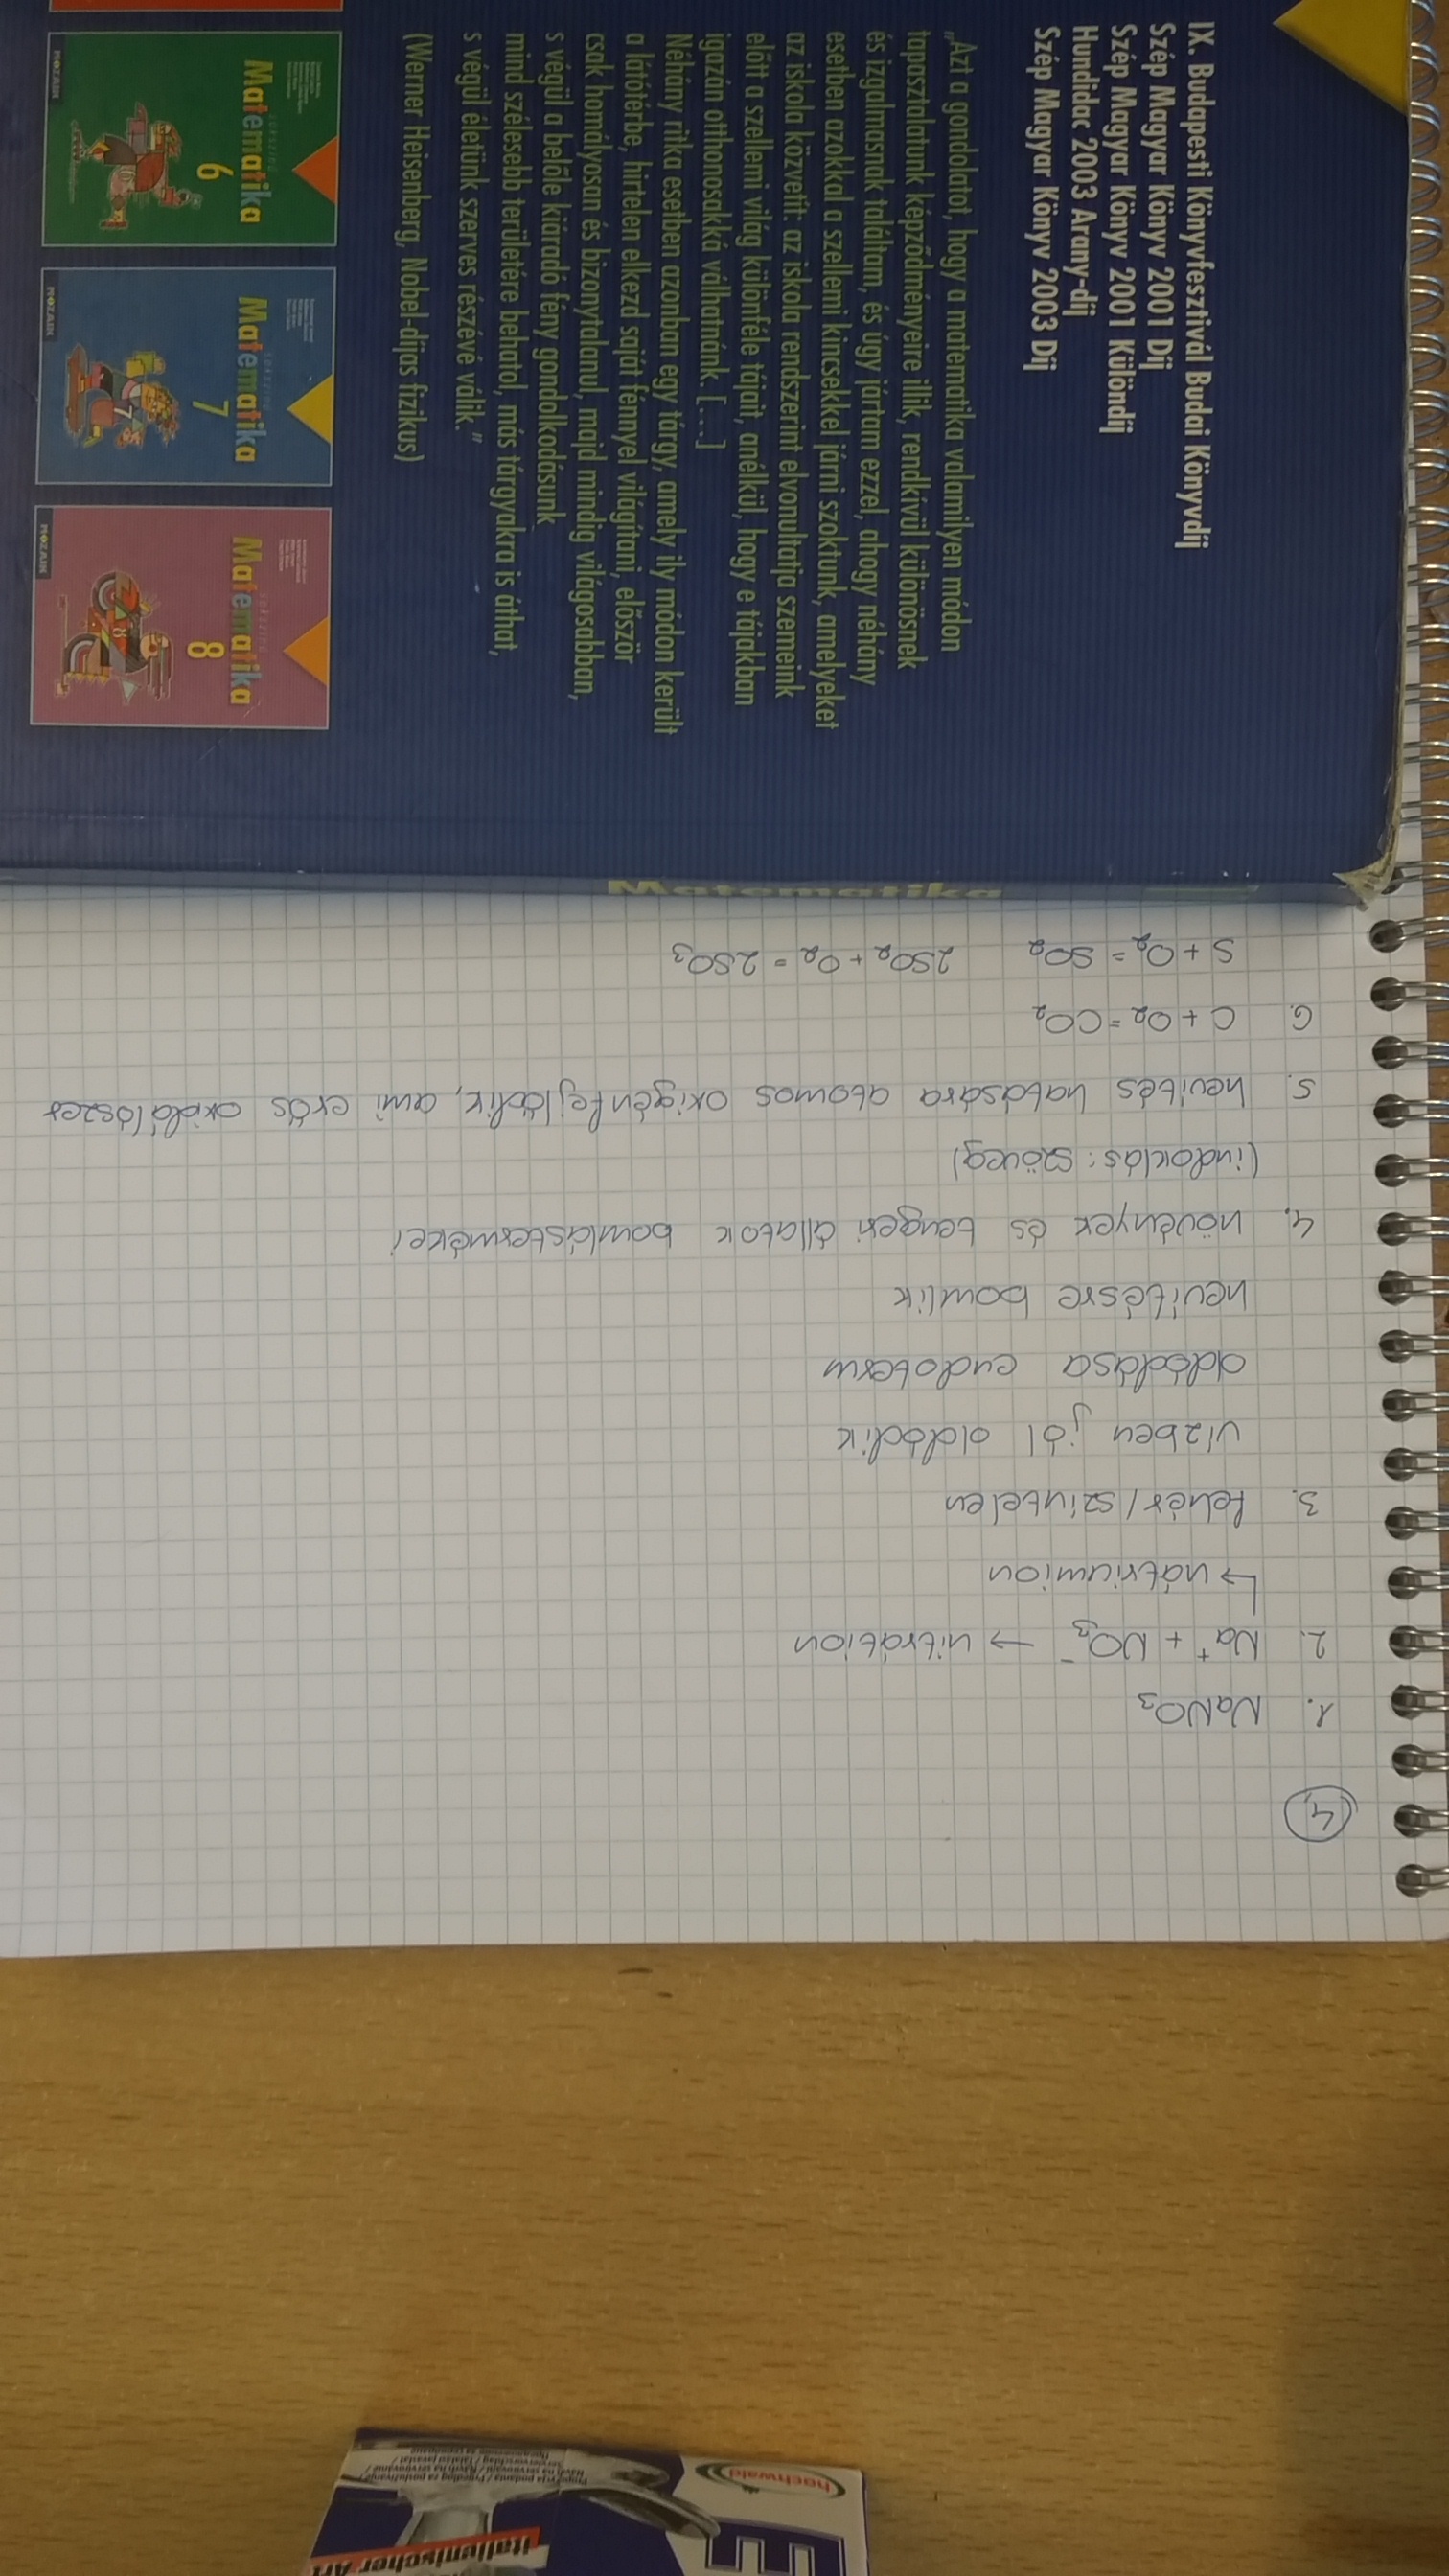 IX. Budapesti Könyvfesztivál Budai Könyvdíj
Szép Magyar Könyv 2001 Díj
Szép Magyar Könyv 2001 Különdíj
Hundidac 2003 Arany-díj
Szép Magyar Könyv 2003 Díj
„Azt a gondolatot, hogy a matematika valamilyen módon
tapasztalatunk képződményeire illik, rendkívül különösnek
és izgalmasnak találtam, és úgy jártam ezzel, ahogy néhány
esetben azokkal a szellemi kincsekkel járni szoktunk, amelyeket
az iskola közvetít: az iskola rendszerint elvonultatja szemeink
előtt a szellemi világ különféle tájait, anélkül, hogy e tájakban
igazán otthonosakká válhatnánk. [...]
Néhány ritka esetben azonban egy tárgy, amely ily módon került
a látótérbe, hirtelen elkezd saját fénnyel világítani, először
csak homályosan és bizonytalanul, majd mindig világosabban,
s végül a belőle kiáradó fény gondolkodásunk
mind szélesebb területére behatol, más tárgyakra is áthat,
s végül életünk szerves részévé válik."
(Werner Heisenberg, Nobel-díjas fizikus)
sokszínű
Matematika
6
MOZAIK
sokszínű
Matematika
7
MOZAIK
sokszínű
Matematika
8
MOZAIK
Matematika
4.
1. NaNO3
2. Na+ + NO3- → nitrátion
↳ nátriumion
3. fehér/színtelen
vízben jól oldódik
oldódása endoterm
hevítésre bomlik
4. növények és tengeri állatok bomlástermékei
(indoklás: szöveg)
5. hevítés hatására atomos oxigén fejlődik, ami erős oxidálószer
6. C + O2 = CO2
S + O2 = SO2 2SO2 + O2 = 2SO3
hochwald
italienischer Art